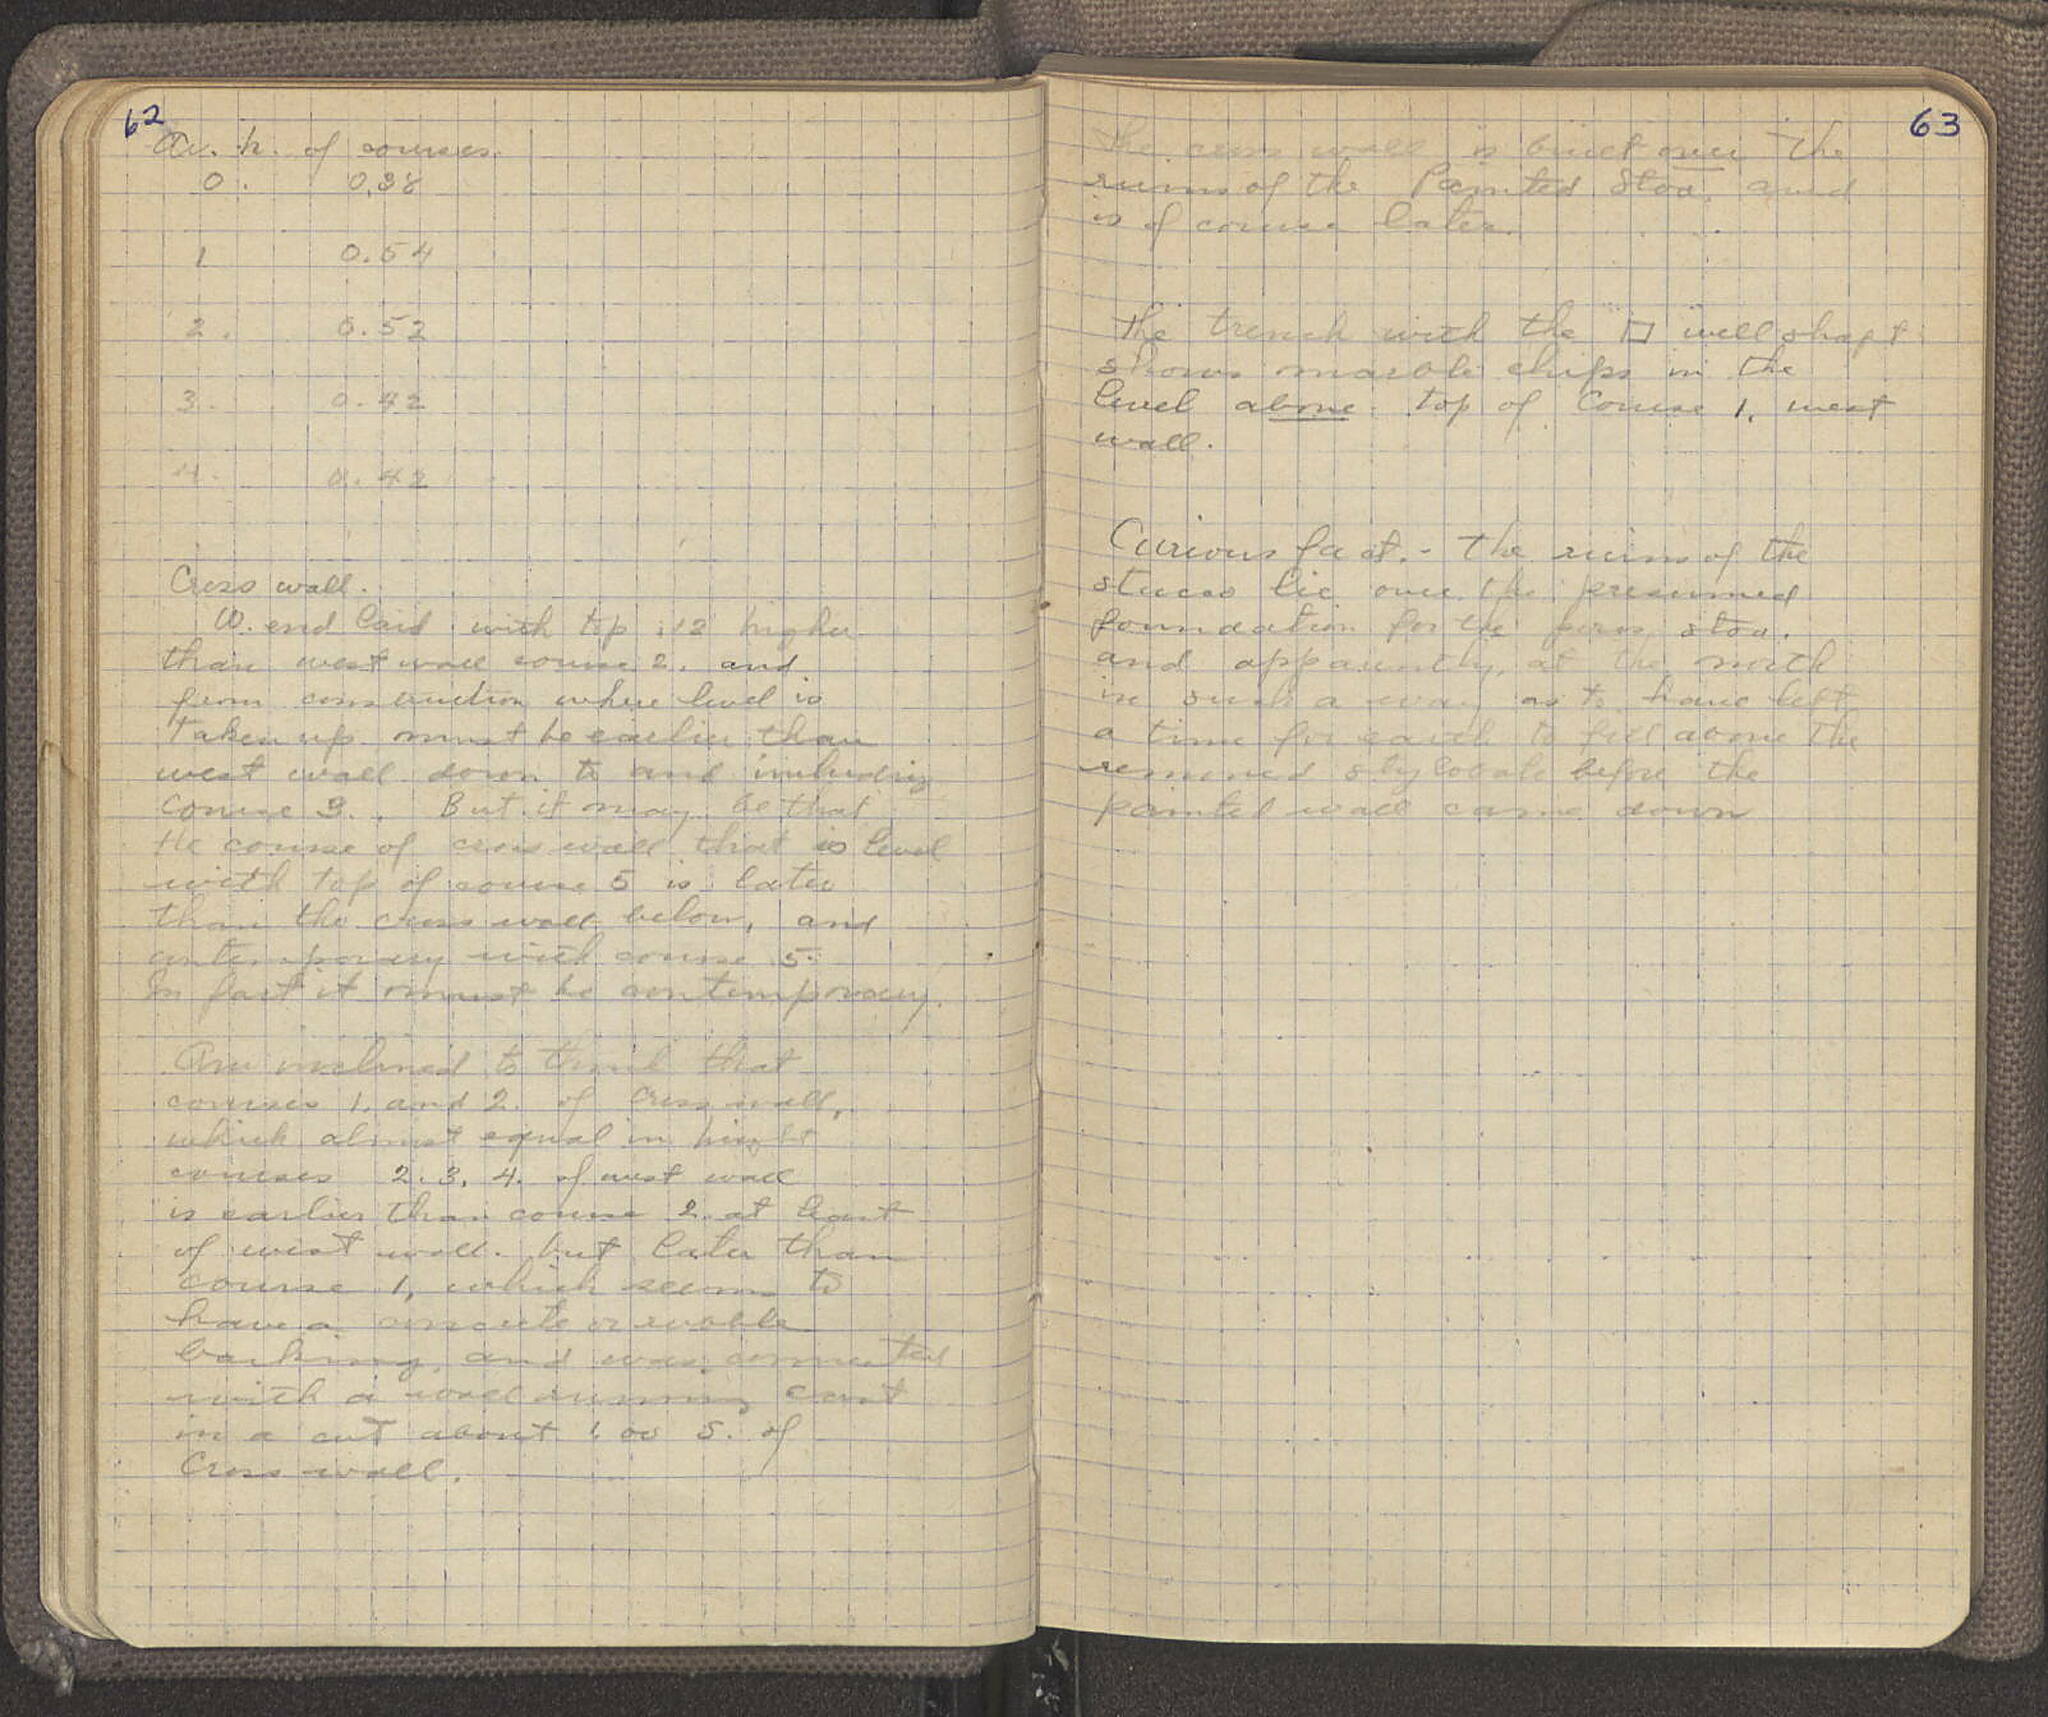 62
Av. h. of courses.
0. 0.38
1 0.54
2. 0.52
3. 0.42
4. 0.42
Cross wall.
W. end laid with top .12 higher
than west wall course 2. and
from construction where level is
taken up must be earlier than
west wall down to and including
course 3. But it may be that
the course of cross wall that is level
with top of course 5 is later
than the cross wall below, and
contemporary with course 5.
In fact it must be contemporary.
Am inclined to think that
courses 1. and 2. of cross wall,
which almost equal in hight
courses 2. 3. 4. of west wall
is earlier than course 2. at least
of west wall. but later than
course 1, which seems to
have a concrete or rubble
backing, and was connected
with a wall running east
in a cut about 1.00 S. of
Cross wall.
63
The cross wall is built over the
ruins of the Painted Stoa, and
is of course later.
The trench with the □ well shaft
shows marble chips in the
level above top of Course 1, west
wall.
Curious fact. - The ruins of the
stucco lie over the presumed
foundation for the stoa.
and apparently, at the north
in such a way as to have left
a time for earth to fill above the
removed stylobate before the
painted wall came down